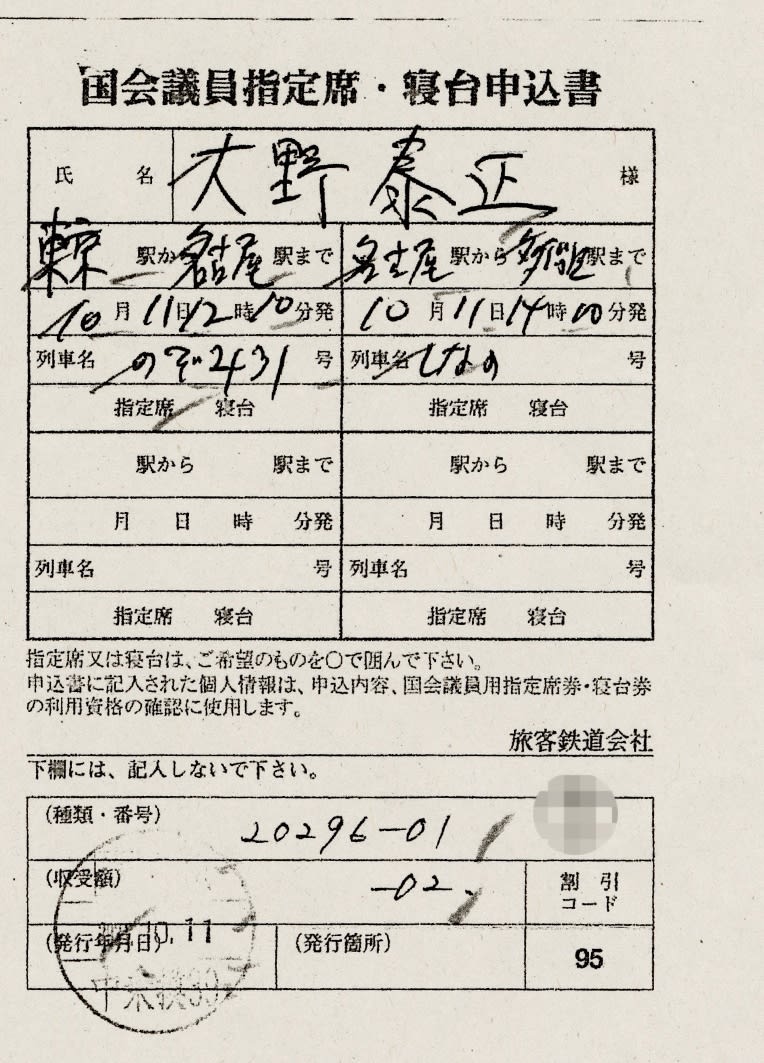 国会議員指定席・寝台申込書
氏名 大野泰正 様
東京駅から名古屋駅まで 名古屋駅から多治見駅まで
10月11日12時10分発 10月11日14時00分発
列車名 のぞ431号 列車名 しなの 号
指定席 寝台 指定席 寝台
駅から 駅まで 駅から 駅まで
月 日 時 分発 月 日 時 分発
列車名 号 列車名 号
指定席 寝台 指定席 寝台
指定席又は寝台は、ご希望のものを○で囲んで下さい。
申込書に記入された個人情報は、申込内容、国会議員用指定席券・寝台券
の利用資格の確認に使用します。
旅客鉄道会社
下欄には、記入しないで下さい。
(種類・番号) 20296-01
(収受額) -02 割引
コード
(発行年月日) 10.11 (発行箇所) 95